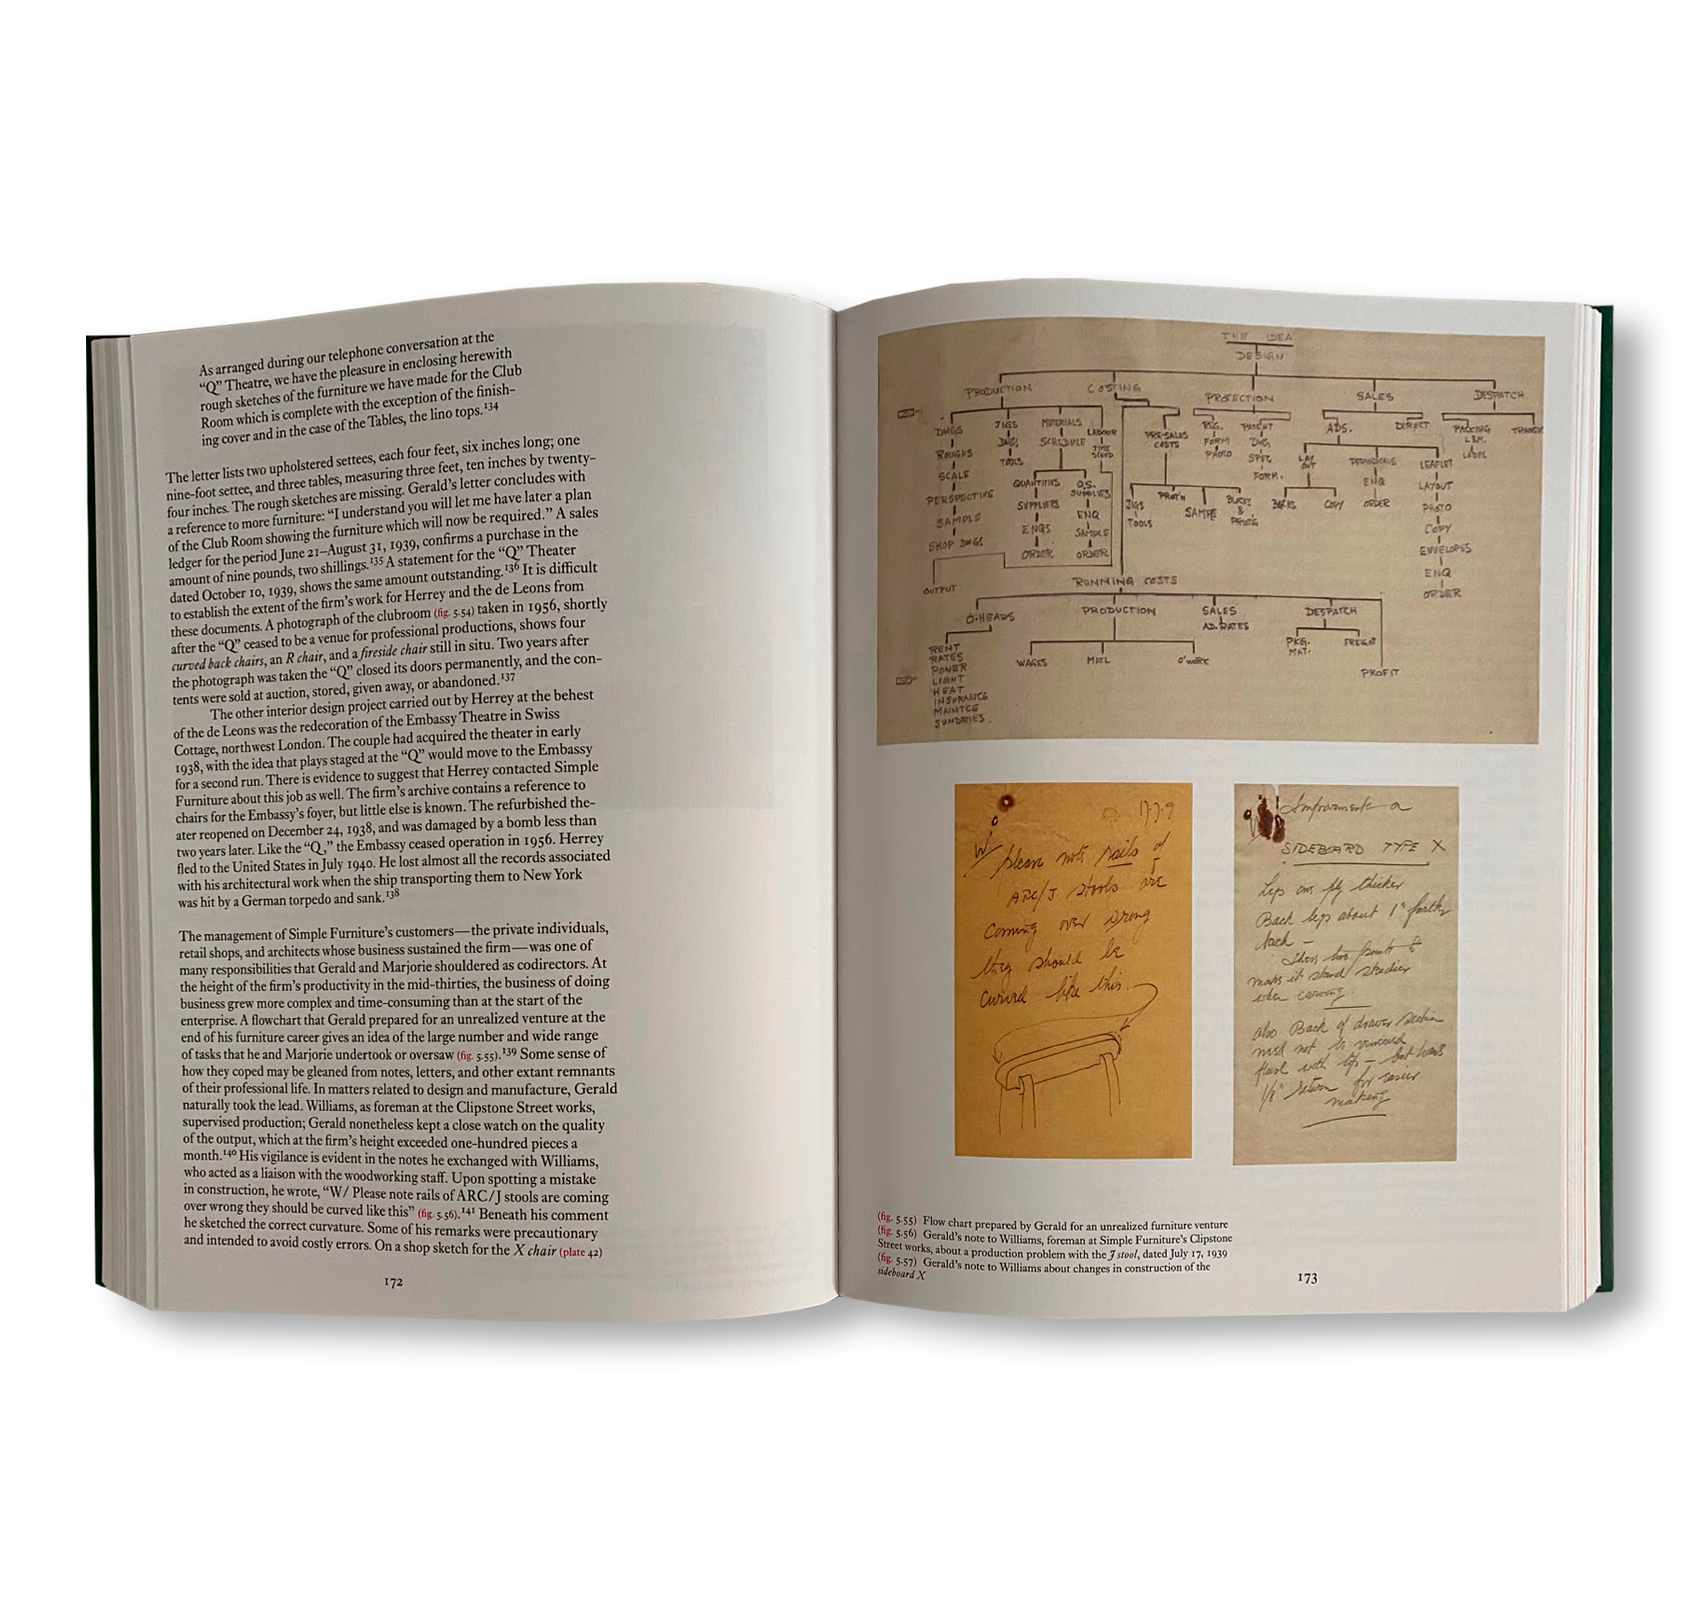 As arranged during our telephone conversation at the
“Q” Theatre, we have the pleasure in enclosing herewith
rough sketches of the furniture we have made for the Club
Room which is complete with the exception of the finish-
ing cover and in the case of the Tables, the lino tops.134
The letter lists two upholstered settees, each four feet, six inches long; one
nine-foot settee, and three tables, measuring three feet, ten inches by twenty-
four inches. The rough sketches are missing. Gerald’s letter concludes with
a reference to more furniture: “I understand you will let me have later a plan
of the Club Room showing the furniture which will now be required.” A sales
ledger for the period June 21–August 31, 1939, confirms a purchase in the
amount of nine pounds, two shillings.135 A statement for the “Q” Theater
dated October 10, 1939, shows the same amount outstanding.136 It is difficult
to establish the extent of the firm’s work for Herrey and the de Leons from
these documents. A photograph of the clubroom (fig. 5.54) taken in 1956, shortly
after the “Q” ceased to be a venue for professional productions, shows four
curved back chairs, an R chair, and a fireside chair still in situ. Two years after
the photograph was taken the “Q” closed its doors permanently, and the con-
tents were sold at auction, stored, given away, or abandoned.137
The other interior design project carried out by Herrey at the behest
of the de Leons was the redecoration of the Embassy Theatre in Swiss
Cottage, northwest London. The couple had acquired the theater in early
1938, with the idea that plays staged at the “Q” would move to the Embassy
for a second run. There is evidence to suggest that Herrey contacted Simple
Furniture about this job as well. The firm’s archive contains a reference to
chairs for the Embassy’s foyer, but little else is known. The refurbished the-
ater reopened on December 24, 1938, and was damaged by a bomb less than
two years later. Like the “Q,” the Embassy ceased operation in 1956. Herrey
fled to the United States in July 1940. He lost almost all the records associated
with his architectural work when the ship transporting them to New York
was hit by a German torpedo and sank.138
The management of Simple Furniture’s customers—the private individuals,
retail shops, and architects whose business sustained the firm—was one of
many responsibilities that Gerald and Marjorie shouldered as codirectors. At
the height of the firm’s productivity in the mid-thirties, the business of doing
business grew more complex and time-consuming than at the start of the
enterprise. A flowchart that Gerald prepared for an unrealized venture at the
end of his furniture career gives an idea of the large number and wide range
of tasks that he and Marjorie undertook or oversaw (fig. 5.55).139 Some sense of
how they coped may be gleaned from notes, letters, and other extant remnants
of their professional life. In matters related to design and manufacture, Gerald
naturally took the lead. Williams, as foreman at the Clipstone Street works,
supervised production; Gerald nonetheless kept a close watch on the quality
of the output, which at the firm’s height exceeded one-hundred pieces a
month.140 His vigilance is evident in the notes he exchanged with Williams,
who acted as a liaison with the woodworking staff. Upon spotting a mistake
in construction, he wrote, “W/ Please note rails of ARC/J stools are coming
over wrong they should be curved like this” (fig. 5.56).141 Beneath his comment
he sketched the correct curvature. Some of his remarks were precautionary
and intended to avoid costly errors. On a shop sketch for the X chair (plate 42)
172
THE IDEA
DESIGN
PRODUCTION COSTING PROTECTION SALES DESPATCH
DWGS JIGS MATERIALS LABOUR PRE-SALES REG. PATENT ADS. DIRECT PACKING
ROUGHS DWG TOOLS SCHEDULE TIME COSTS FORM PHOTO DWG SPEC FORM. LAY OUT PERIODICALS LEAFLET LABEL
SCALE QUANTITIES O.S. SUPPLIES ENQ LAYOUT
PERSPECTIVE SUPPLIERS ENQ JIGS TOOLS PROT'N SAMPLE BLOCKS & COPY ORDER PHOTO
SAMPLE ENQS SAMPLE COPY
SHOP DWGS ORDER ORDER ENVELOPES
ENQ
OUTPUT ORDER
RUNNING COSTS
O.HEADS PRODUCTION SALES DESPATCH
AD. RATES
RENT WAGES MATL O'WORK PKG. MAT. FREIGHT
RATES PROFIT
POWER
LIGHT
HEAT
INSURANCE
MAINTCE
SUNDRIES.
17.7.9
W/ please note rails of
ARC/J stools are
coming over wrong
they should be
curved like this.
SIDEBOARD TYPE X
Lips one ply thicker
Back legs about 1" further
back –
make it stand steadier
when carving.
also Back of drawer section
need not be veneered
flush with top – but have
1/8" return for easier
making
(fig. 5.55) Flow chart prepared by Gerald for an unrealized furniture venture
(fig. 5.56) Gerald’s note to Williams, foreman at Simple Furniture’s Clipstone
Street works, about a production problem with the J stool, dated July 17, 1939
(fig. 5.57) Gerald’s note to Williams about changes in construction of the
sideboard X
173